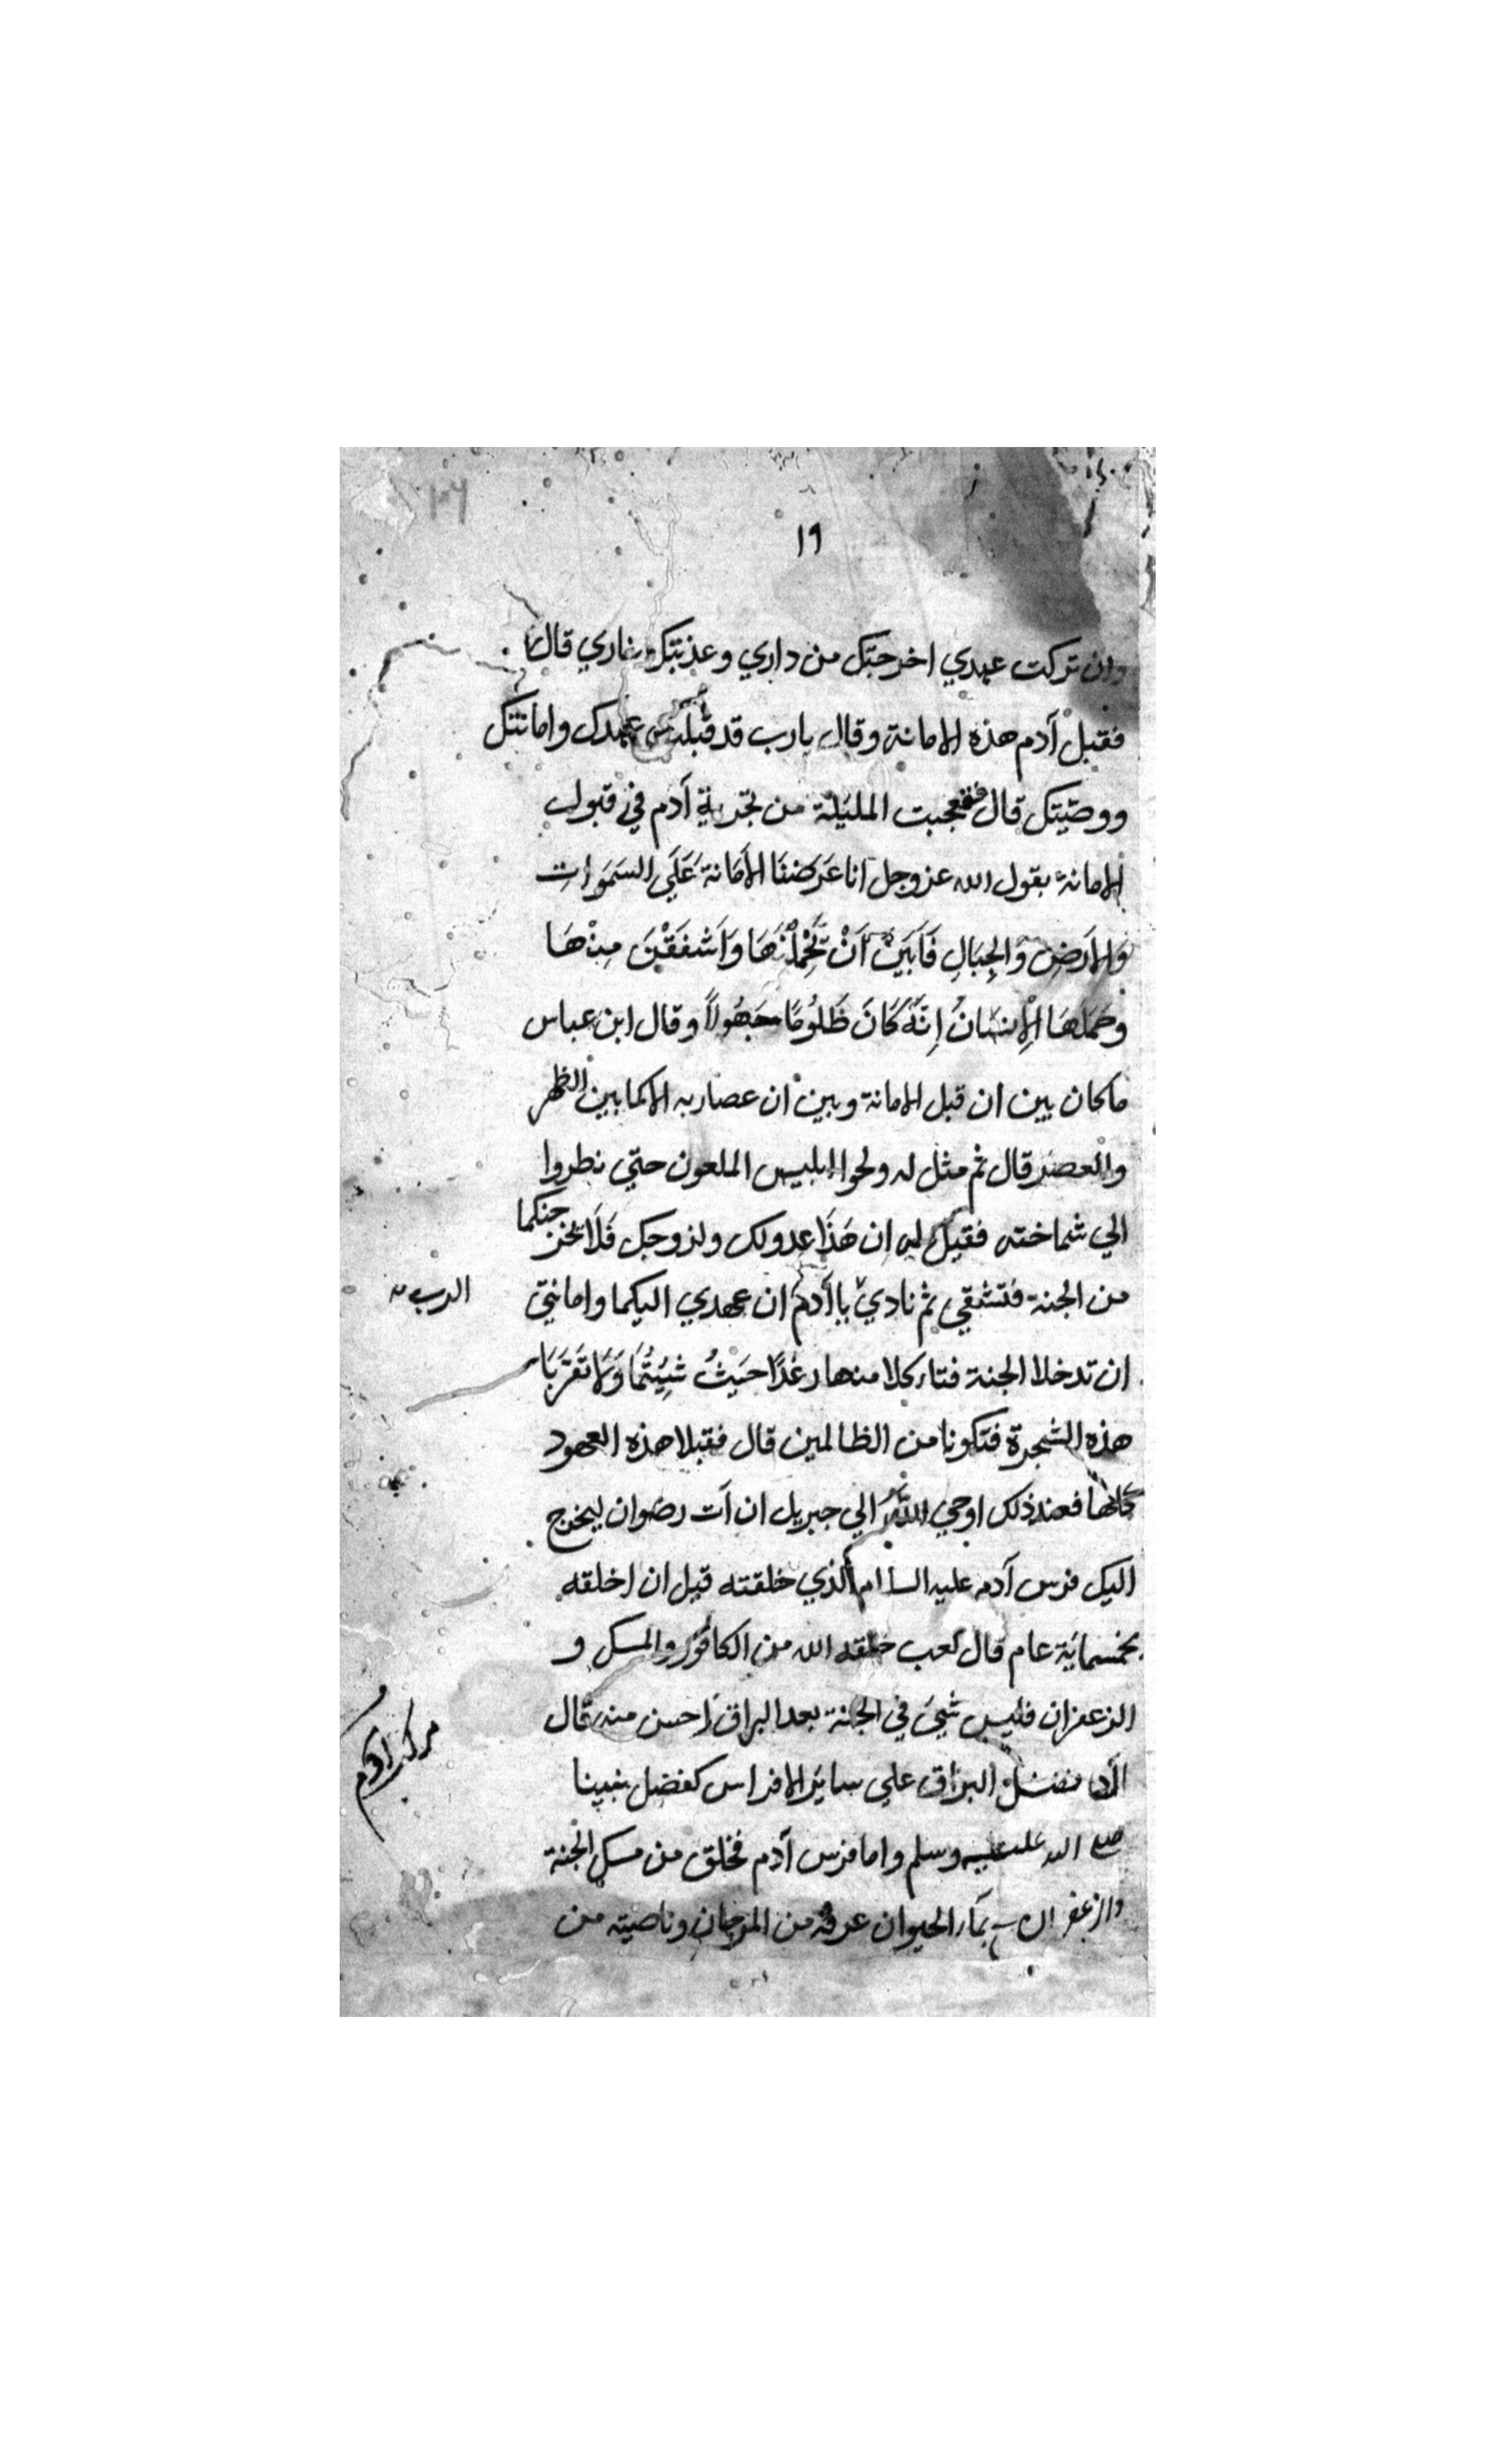 ١٩
وان تركت عهدي اخرجتك من داري وعذبتك بناري قال
فقبل آدم هذه الامانة وقال يارب قد قبلت عهدك وامانتك
ووصيتك قال فعجبت المليكة من تجرية آدم في قبول
الامانة بقول الله عز وجل انا عَرَضنَا الأَمَانَةَ عَلَي السَمَوَاتِ
وَالاَرَضِ وَالجِبَالِ فَاَبَيَنْ اَنْ تَحْمِلْنَهَا وَاَشفَقْنَ مِنْهَا
وحَمَلهَا الْإِنسَانُ إِنَّهُ كَانَ ظَلُومًا جَهُولاً وقال ابن عباس
ما كان بين ان قبل الامانة وبين ان عصا ربه الا كما بين الظهر
والعصر قال ثم مثل له ولحوا ابليس الملعون حتي نظروا
الي شماخته فقيل له ان هَذَا عدو لك ولزوجك فَلَا يخرجنكما
من الجنة فتشقي ثم نادي يا آدم ان عهدي اليكما وامانتي
الرب
ان تدخلا الجنة فتاءكلا منها رغدًا حَيثُ شِيتُمَا وَلَا تَقرَبَا
هذه الشجرة فتكونا من الظالمين قال فقبلا هذه العهود
كلها فعند ذلك اوحي اللهُ الي جبريل ان آت رضوان ليخرج
اليك فرس آدم عليه السلام الذي خلقته قبل ان اخلقه
بخمسماية عام قال كعب خلقه الله من الكافور والمسك و
الزعفران فليس شيئ في الجنة بعد البراق احسن منه قال
فضل البراق علي ساير الافراس كفضل نبينا
مركب آدم
صلى الله عليه وسلم واما فرس آدم فخلق من مسك الجنة
والزعفران بمآء الحيوان عرفه من المرجان وناصيته من